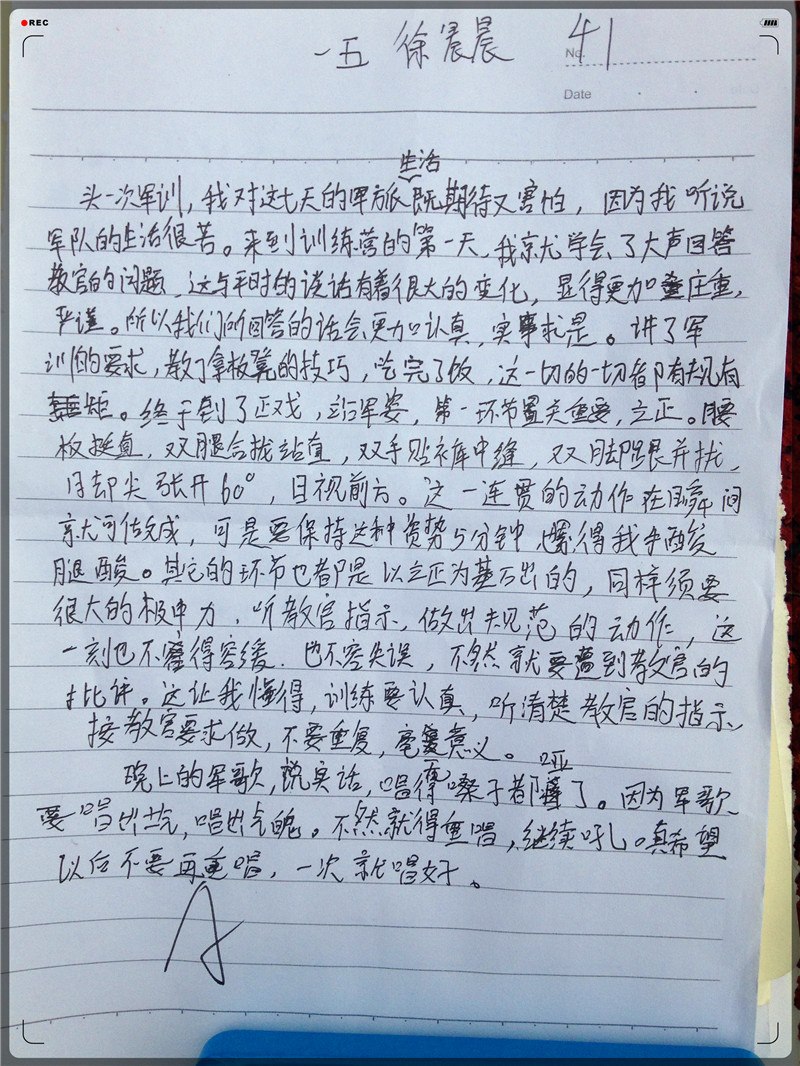 REC
一五 徐晨晨 No. 41
Date
生活
头一次军训,我对这七天的军旅既期待又害怕,因为我听说
军队的生活很苦。来到训练营的第一天,我就学会了大声回答
教官的问题,这与平时的谈话有着很大的变化,显得更加庄重,
严谨。所以我们所回答的话会更加认真,实事求是。讲了军
训的要求,教了拿板凳的技巧,吃完了饭,这一切的一切都有规有
矩。终于到了正戏,站军姿,第一环节至关重要,立正。腰
板挺直,双腿合拢站直,双手贴裤中缝,双脚跟并拢,
脚尖张开60°,目视前方。这一连贯的动作在瞬间
就可做完成,可是要保持这种资势5分钟,累得我手酸
腿酸。其它的环节也都是以立正为基石出的,同样须要
很大的极中力,听教官指示,做出规范的动作,这
一刻也不得容缓,也不容失误,不然就要遭到教官的
批评。这让我懂得,训练要认真,听清楚教官的指示,
按教官要求做,不要重复,毫无意义。
晚上的军歌,说实话,唱得嗓子都哑了。因为军歌
要唱出士气,唱出气魄。不然就得重唱,继续吼。真希望
以后不要再重唱,一次就唱好。
A